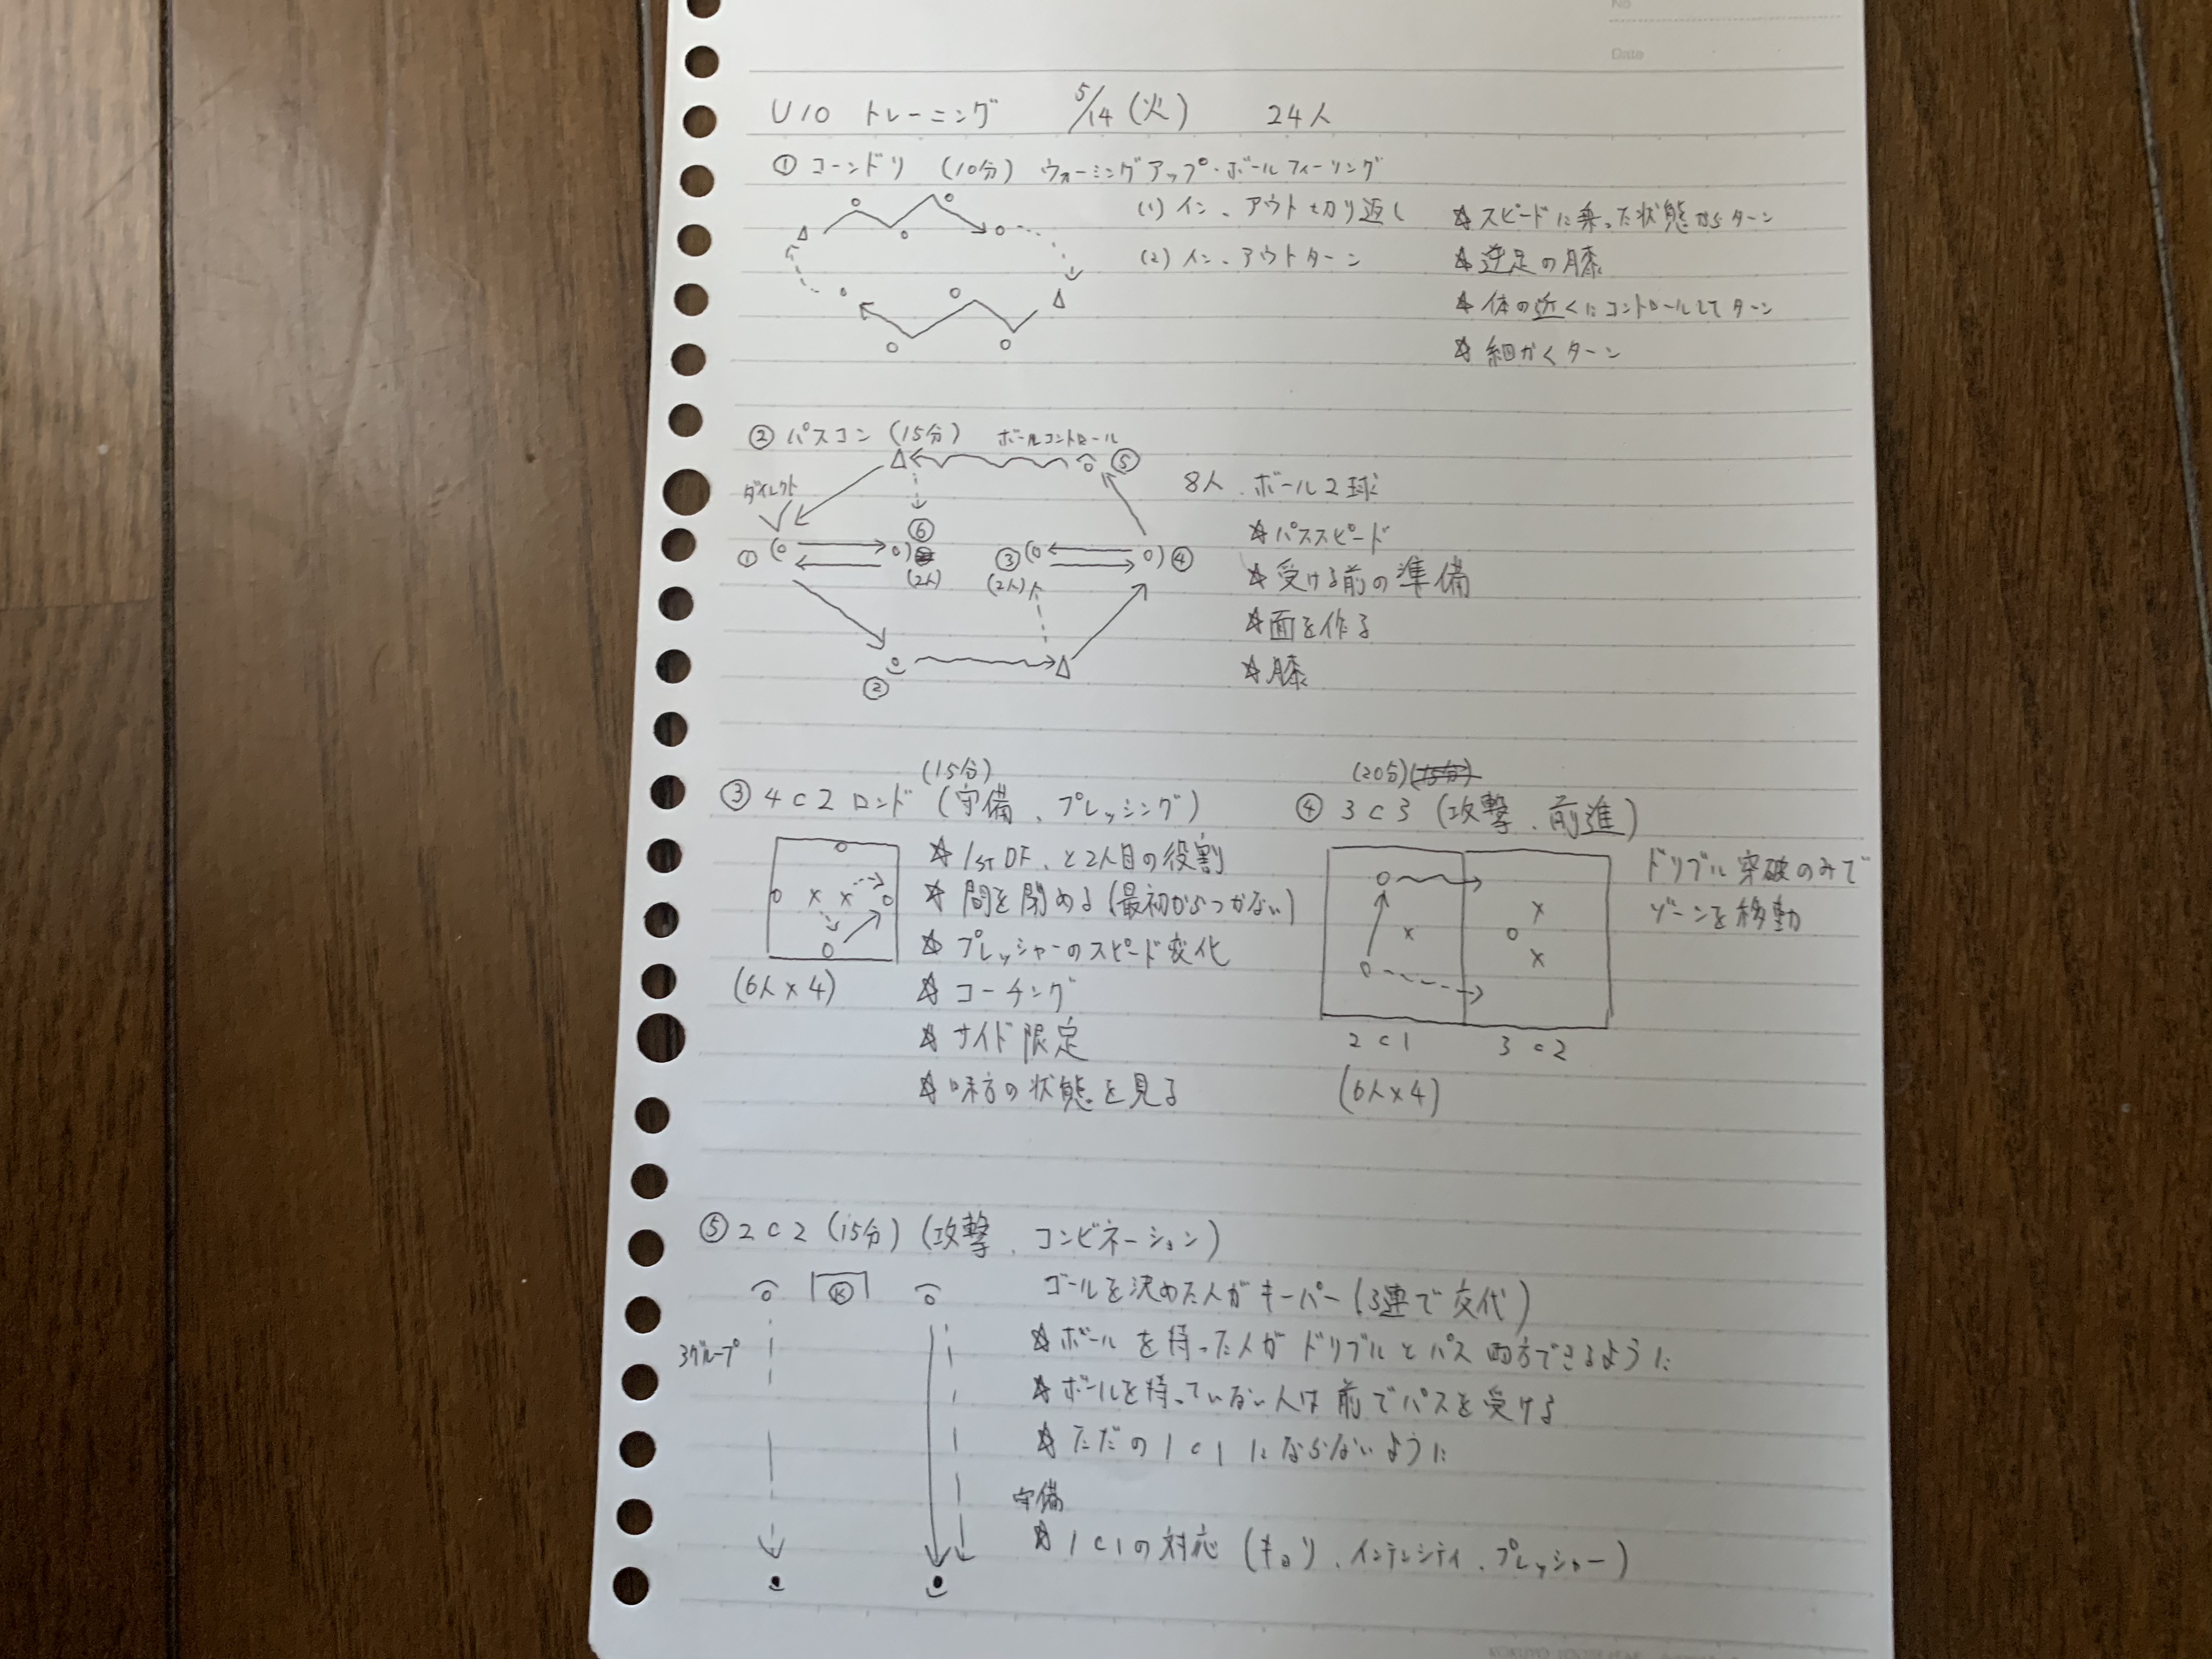 No
Date
U10 トレーニング 5/14(火) 24人
① コーンドリ (10分) ウォーミングアップ・ボールフィーリング
(1) イン、アウト切り返し
(2) イン、アウトターン
☆スピードに乗った状態からターン
☆逆足の膝
☆体の近くにコントロールしてターン
☆細かくターン
② パスコン (15分) ボールコントロール
⑤
ダイレクト
⑥
① ③ ④
(2人) (2人)
②
8人、ボール2球
☆パススピード
☆受ける前の準備
☆面を作る
☆膝
(15分)
③ 4c2 ロンド (守備、プレッシング)
☆1st DF、と2人目の役割
☆間を閉める(最初からつかない)
☆プレッシャーのスピード変化
☆コーチング
☆サイド限定
☆味方の状態を見る
(6人×4)
(20分)(15分)
④ 3c3 (攻撃、前進)
ドリブル突破のみで
ゾーンを移動
2c1 3c2
(6人×4)
⑤ 2c2 (15分) (攻撃、コンビネーション)
K
3グループ
ゴールを決めた人がキーパー(3連で交代)
☆ボールを持った人がドリブルとパス両方できるように
☆ボールを持っていない人は前でパスを受ける
☆ただの1c1にならないように
守備
☆1c1の対応 (キョリ、インテンシティ、プレッシャー)